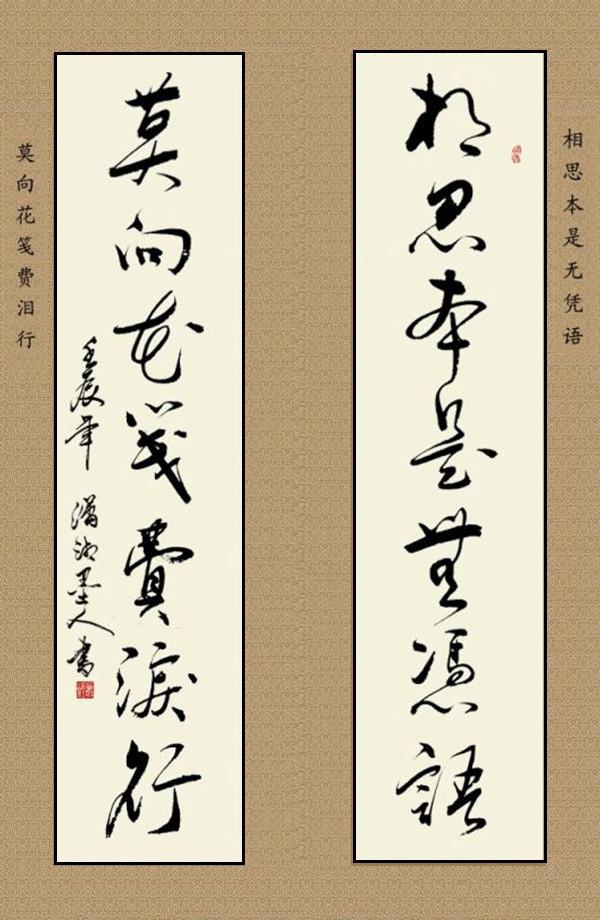 相思本是无凭语
相思本是無憑語
莫向花箋費淚行
壬辰年 瀟湘墨人書
莫向花笺费泪行